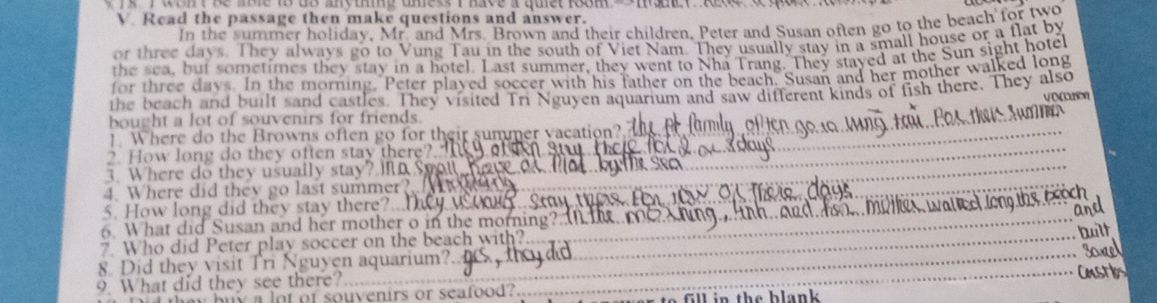 V. Read the passage then make questions and answer.
In the summer holiday, Mr. and Mrs. Brown and their children, Peter and Susan often go to the beach for two
or three days. They always go to Vung Tau in the south of Viet Nam. They usually stay in a small house or a flat by
the sea, but sometimes they stay in a hotel. Last summer, they went to Nha Trang. They stayed at the Sun sight hotel
for three days. In the morning, Peter played soccer with his father on the beach, Susan and her mother walked long
the beach and built sand castles. They visited Tri Nguyen aquarium and saw different kinds of fish there. They also
bought a lot of souvenirs for friends.
1. Where do the Browns often go for their summer vacation? the family often go to vung tau for their summer vacation
2. How long do they often stay there? They often stay there for 2 or 3 days
3. Where do they usually stay? in a small house or flat by the sea
4. Where did they go last summer?
5. How long did they stay there? They usually stay there for two or three days
6. What did Susan and her mother o in the morning? in the morning, and mother walked long the beach and built sand
7. Who did Peter play soccer on the beach with?
8. Did they visit Tri Nguyen aquarium? yes, they did
9. What did they see there?
buy a lot of souvenirs or seafood?
to fill in the blank